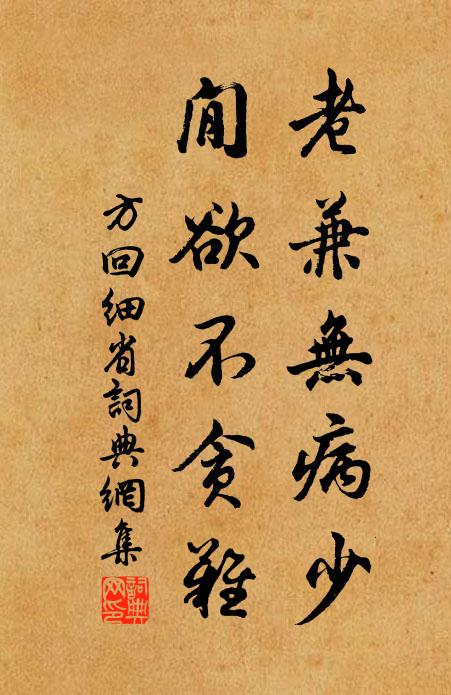 老兼無病少
閒欲不貪難
方回細省詞典網集
詞典網印